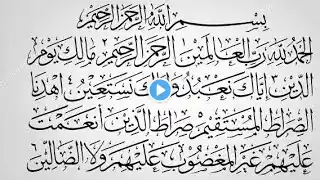 بسم الله الرحمن الرحيم
الحمد لله رب العالمين الرحمن الرحيم مالك يوم
الدين إياك نعبد وإياك نستعين اهدنا
الصراط المستقيم صراط الذين أنعمت
عليهم غير المغضوب عليهم ولا الضالين